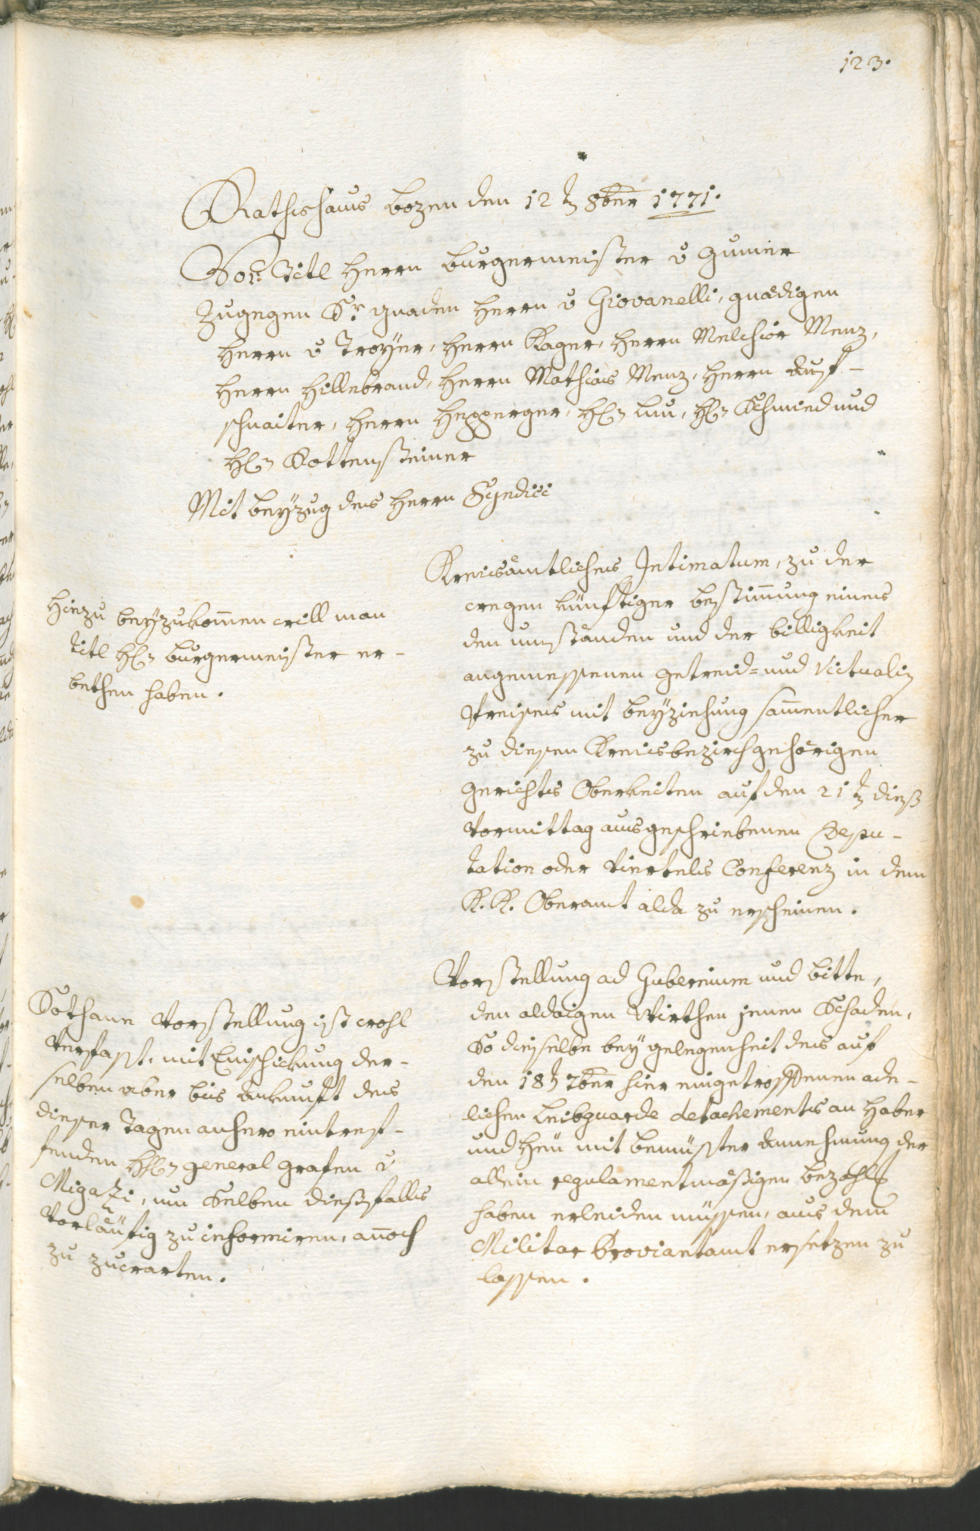 123.
Rathshaus Bozen den 12t 8ber 1771.
Vor Titl Herrn Burgermeister v Gumer
Zugegen Sr gnaden Herrn v Giovanelli, gnädigen
Herrn v Troyer, Herrn Kager, Herrn Melchior Menz,
Herrn Hillebrand, Herrn Mathias Menz, Herrn Auf-
schnaiter, Herrn Hepperger, H Lun, H Schmied und
H Kottensteiner
Mit Beyzug des Herrn Syndici
Kreisämtliches Intimatum, zu der
wegen künftiger bestimung eines
den umständen und der billigkeit
angemessenen getreid- und Victualien
Preises mit beyziehung sämentlicher
zu diesen Kreisbezirch gehörigen
gerichts Oberkeiten auf den 21t dieß
Vormittag ausgeschriebenen Depu-
tation oder Viertels Conferenz in dem
K. K. Oberamt alda zu erscheinen.
Hinzu beyzukomen will man
titl H Burgermeister er-
bethen haben.
Vorstellung ad Gubernium und bitte,
den aldaigen Wirthen jenen Schaden,
So dieselbe bey gelegenheit des auf
den 18t 7ber hier eingetroffenen ade-
lichen Leibguarde detachements an Haber
und Heu mit bemüster Annehmung der
allein regulamentmäßigen bezahl
haben erleiden müssen, aus dem
Militar Proviantamt ersetzen zu
lassen.
Sothane Vorstellung ist wohl
Verfast, mit Einschickung der-
selben aber bis Ankunft des
dieser Tagen anhero eintref-
fenden H general grafen v
Migazi, um Selben dießfalls
Vorläufig zu informiren, anoch
zu zuwarten.